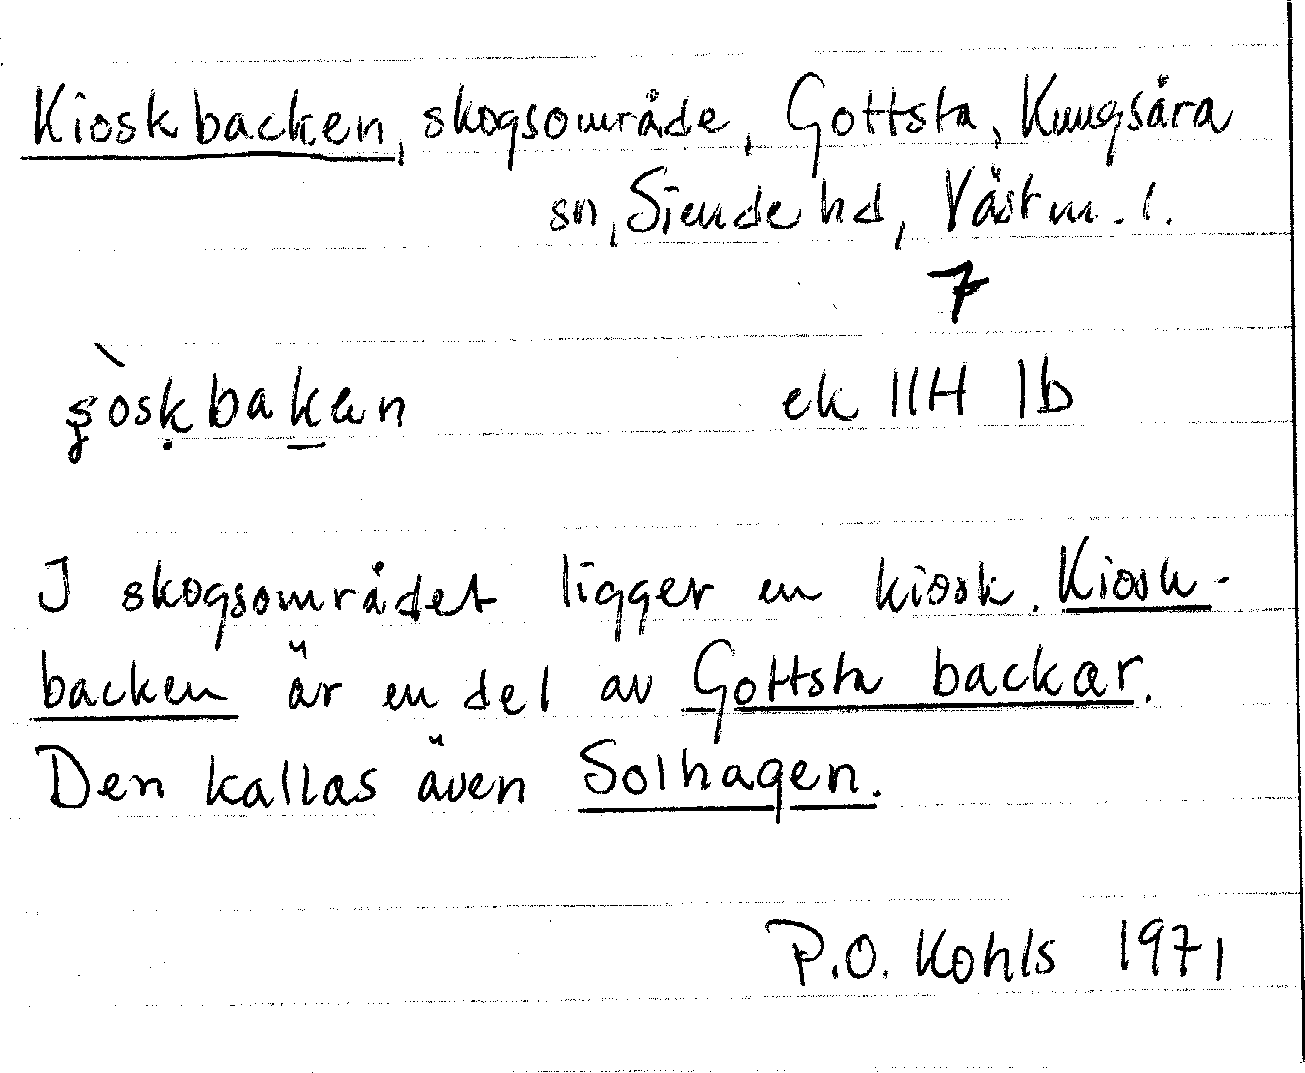 Kioskbacken, skogsområde, Gottsta, Kungsåra
sn, Siende hd, Västm. l.
7
ek IIH 1b
I skogsområdet ligger en kiosk. Kiosk-
backen är en del av Gottsta backar.
Den kallas även Solhagen.
P.O. Kohls 1971